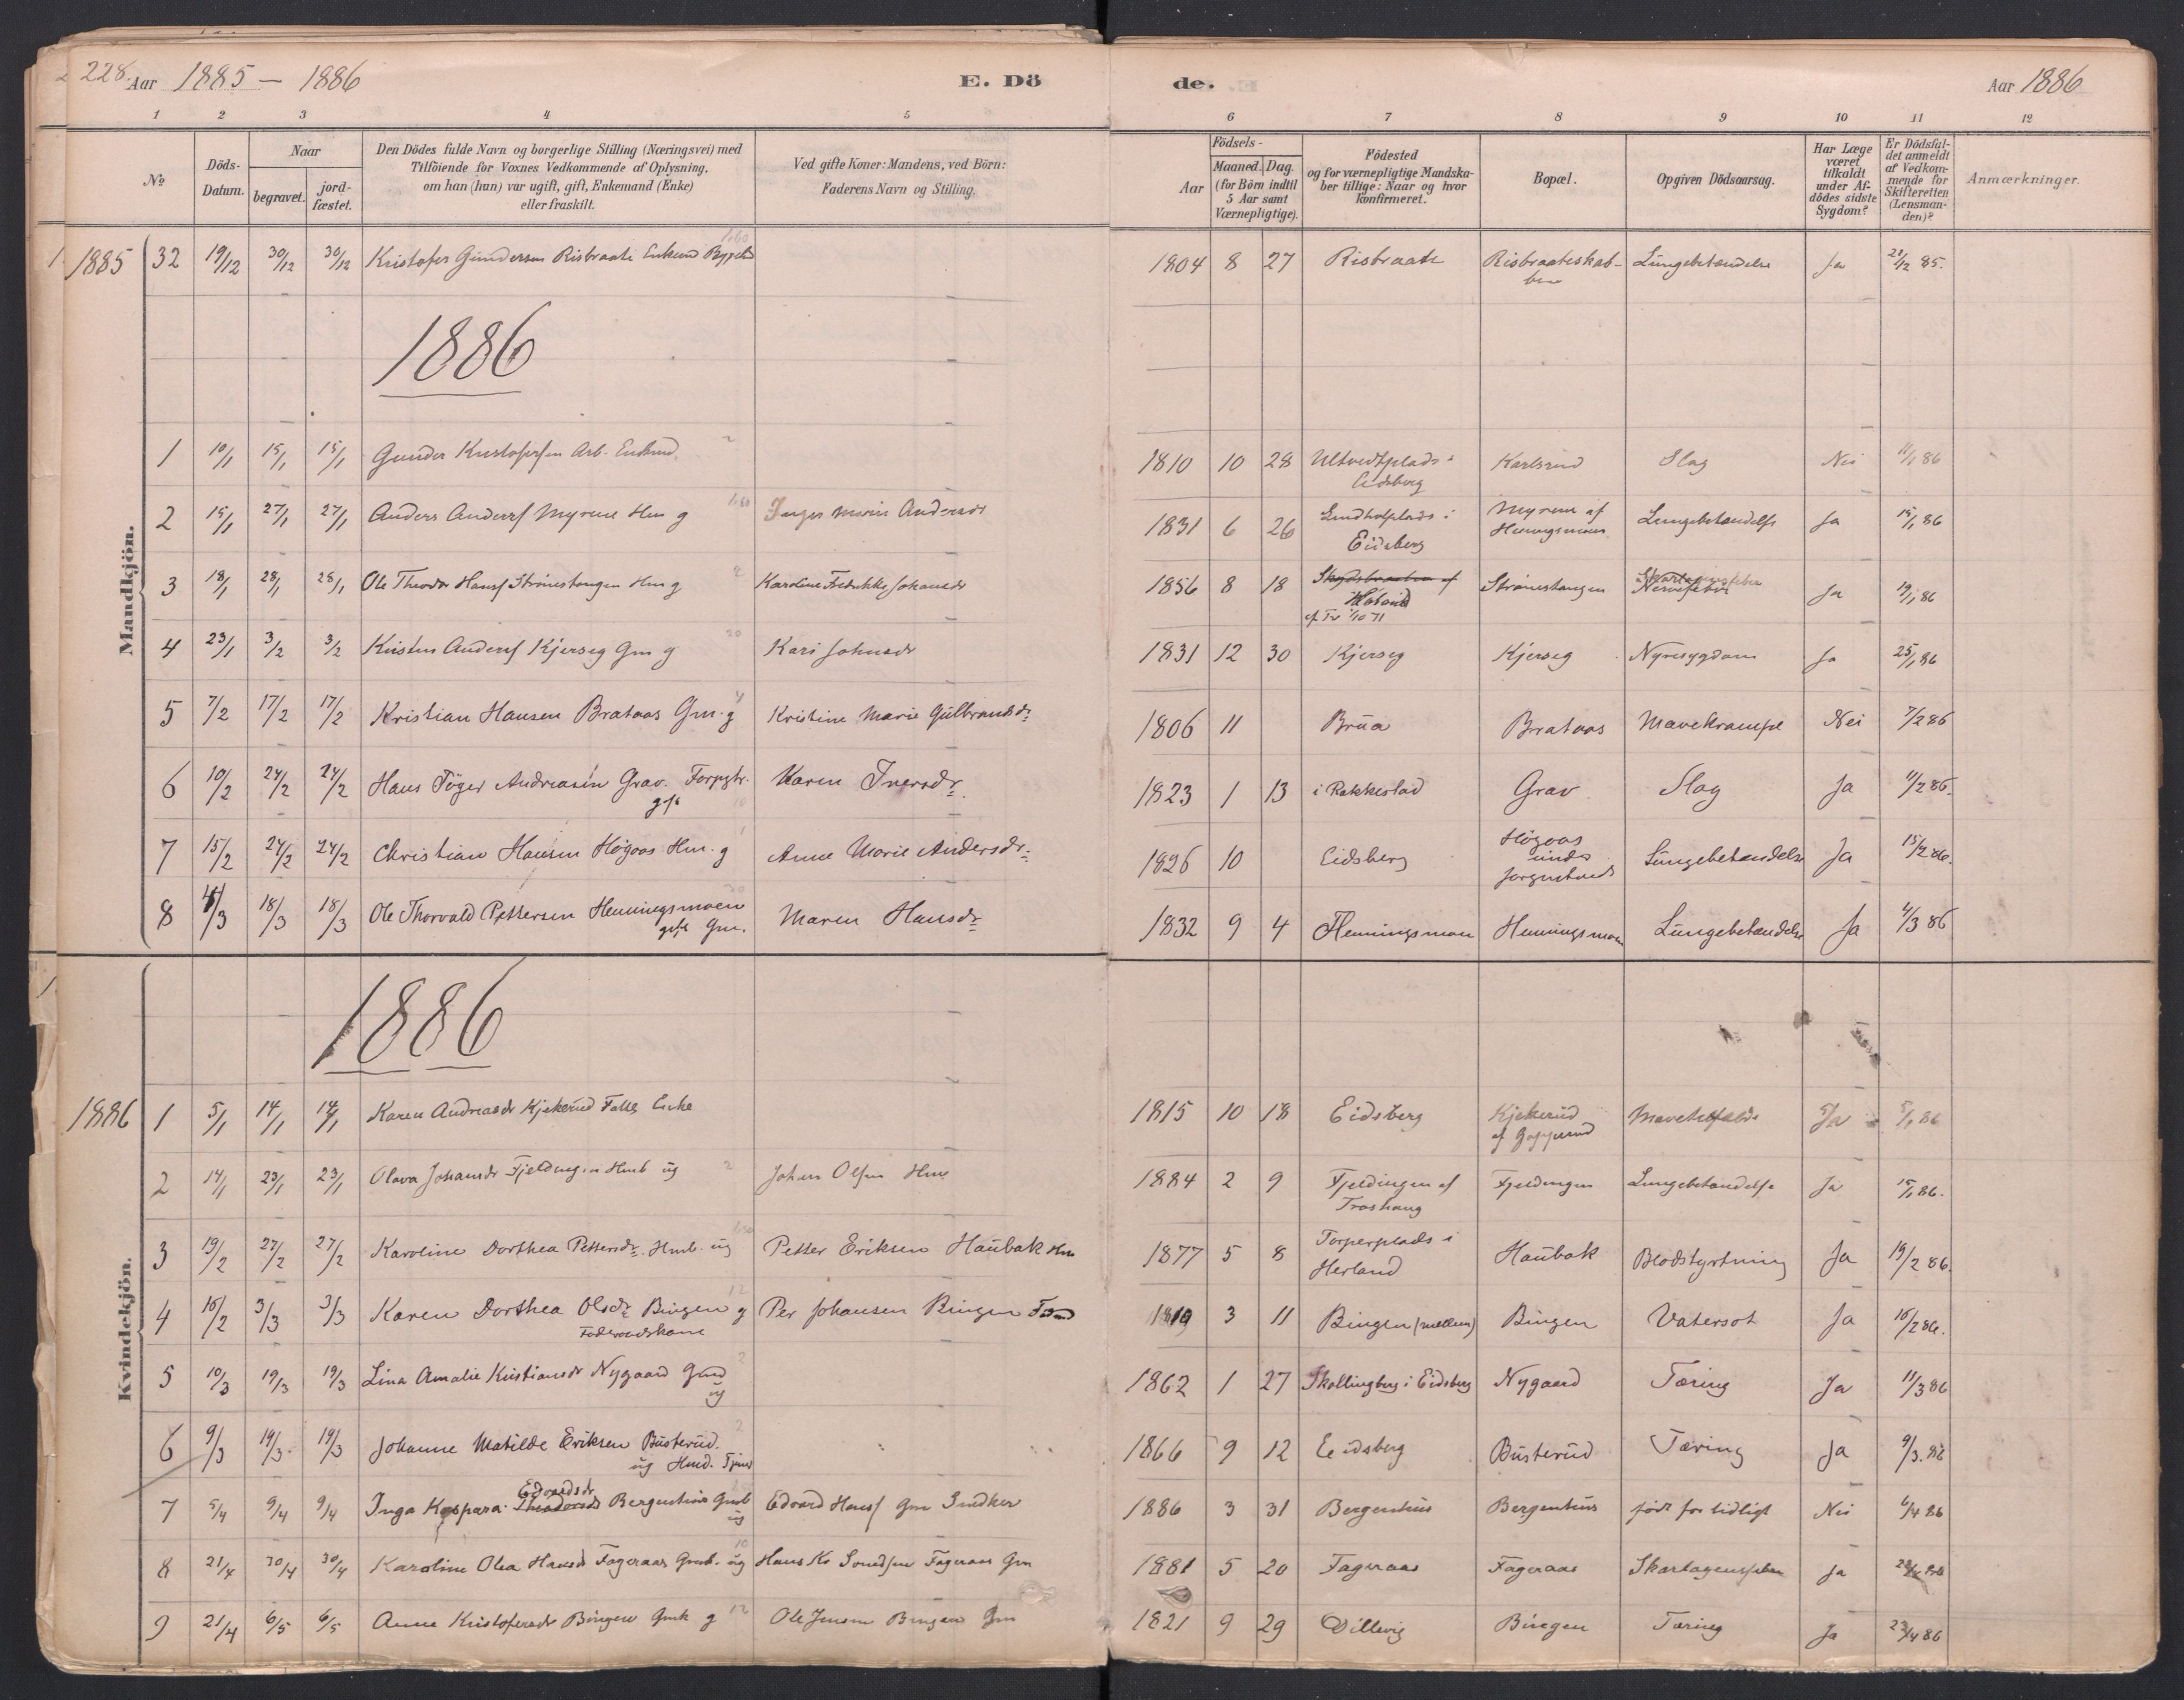 228. Aar 1885 — 1886 E. Dö de. Aar 1886
1 2 3 4 5 6 7 8 9 10 11 12
No
Döds-Datum.
Naar
begravet.
jord-fæstet.
Den Dödes fulde Navn og borgerlige Stilling (Næringsvei) med
Tilföiende for Voxnes Vedkommende af Oplysning,
om han (hun) var ugift, gift, Enkemand (Enke)
eller fraskilt.
Ved gifte Koner: Mandens, ved Börn:
Faderens Navn og Stilling.
Födsels-
Aar
Maaned. Dag.
(for Börn indtil
5 Aar samt
Værnepligtige).
Födested
og for værnepligtige Mandska-
ber tillige: Naar og hvor
konfirmeret.
Bopæl.
Opgiven Dödsaarsag.
Har Læge
været
tilkaldt
under Af-
dödes sidste
Sygdom?
Er Dödsfal-
det anmeldt
af Vedkom-
mende for
Skifteretten
(Lensman-
den)?
Anmærkninger.
Mandkjön.
1885 32 19/12 30/12 30/12 Kristofer Gundersen Risbraate Enkemd 1804 8 27 Risbraate Risbraateskab- Lungebetændelse Ja 21/12 85.
1886
1 10/1 15/1 15/1 Gunder Kristofersen Arb. Enkemd. 1810 10 28 Ultvedtplads i Karlsrud Slag Nei 11/1 86
Eidsberg
2 15/1 27/1 27/1 Anders Anders Myrene Hm g Inger Marie Andersdr 1831 6 26 Lundholsplads i Myrene af Lungebetændelse Ja 15/1 86
Eidsberg Henningsmoen
3 18/1 28/1 28/1 Ole Theodor Hans Strønestangen Hm g Karoline Fredrikke Johansdr 1856 8 18 Strønestangen Skarlagensfeber Nervefeber Ja 19/1 86
4 23/1 3/2 3/2 Kristen Anders Kjerseg Gm g Kari Johnsdr 1831 12 30 Kjerseg Kjerseg Nyresygdom Ja 25/1 86
5 7/2 17/2 17/2 Kristian Hansen Brataas Gm. g Kristine Marie Gulbrandsdr 1806 11 Brua Brataas Mavekrampe Nei 7/2 86
6 10/2 24/2 24/2 Hans Föger Andreasen Grav. Forpgtr. Karen Iversdr. 1823 1 13 i Rakkestad Grav Slag Ja 11/2 86.
gft
7 15/2 24/2 24/2 Christian Hansen Högaas Hm. g Anne Marie Andersdr. 1826 10 Eidsberg Högaas Lungebetændelse Ja 15/2 86.
under
8 4/3 18/3 18/3 Ole Thorvald Pettersen Henningsmoen Maren Hansdr 1832 9 4 Henningsmoen Henningsmoen Lungebetændelse Ja 4/3 86
gift Gm.
Kvindekjön.
1886
1886 1 5/1 14/1 14/1 Karen Andreasdr Kjekerud Fattig Enke 1815 10 18 Eidsberg Kjekerud Ja 5/1 86
2 14/1 23/1 23/1 Olava Johansdr Fjeldingen Hmb ug Johan Olsen Hm 1884 2 9 Fjeldingen af Fjeldingen Lungebetændelse Ja 15/1 86.
Troshaug
3 19/2 27/2 27/2 Karoline Dorthea Pettersdr. Hmb. ug Petter Eriksen Haubak Hm 1877 5 8 Torperplads i Haubak Blodstyrtning Ja 19/2 86.
Herland
4 15/2 3/3 3/3 Karen Dorthea Olsdr. Bingen g Per Johansen Bingen 1819 3 11 Bingen (mellem) Bingen Vatersot Ja 16/2 86.
Föderaadskone
5 10/3 19/3 19/3 Lina Amalie Kristiansdr Nygaard Gmd 1862 1 27 Skollingberg i Eidsberg Nygaard Tæring Ja 11/3 86
ug
6 9/3 19/3 19/3 Johanne Matilde Eriksen Busterud. 1866 9 12 Eidsberg Busterud Tæring Ja 9/3. 86
ug Hmd. Tjen
Edvardsdr
7 5/4 9/4 9/4 Inga Kaspara Theodorsdr Bergenhus Gmb Edvard Hans Gm Snedker 1886 3 31 Bergenhus Bergenhus født for tidligt Nei 6/4 86
ug
8 21/4 30/4 30/4 Karoline Olea Hansdr Fageraas Gmb. ug Hans Kr Fageraas Gm 1881 5 20 Fageraas Fageraas Skarlagensfeber Ja
9 21/4 6/5 6/5 Anne Kristofersdr Bingen Gmk g 12 Ole Jensen Bingen Gm 1821 9 29 Dillevig Bingen Tæring Ja 23/4 86